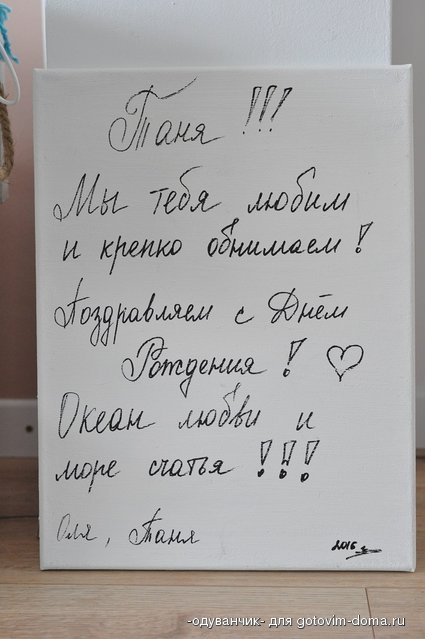 Таня !!!
Мы тебя любим
и крепко обнимаем !
Поздравляем с Днём
Рождения ! ♡
Океан любви и
море счастья !!!
Оля, Таня
2015
-одуванчик- для gotovim-doma.ru